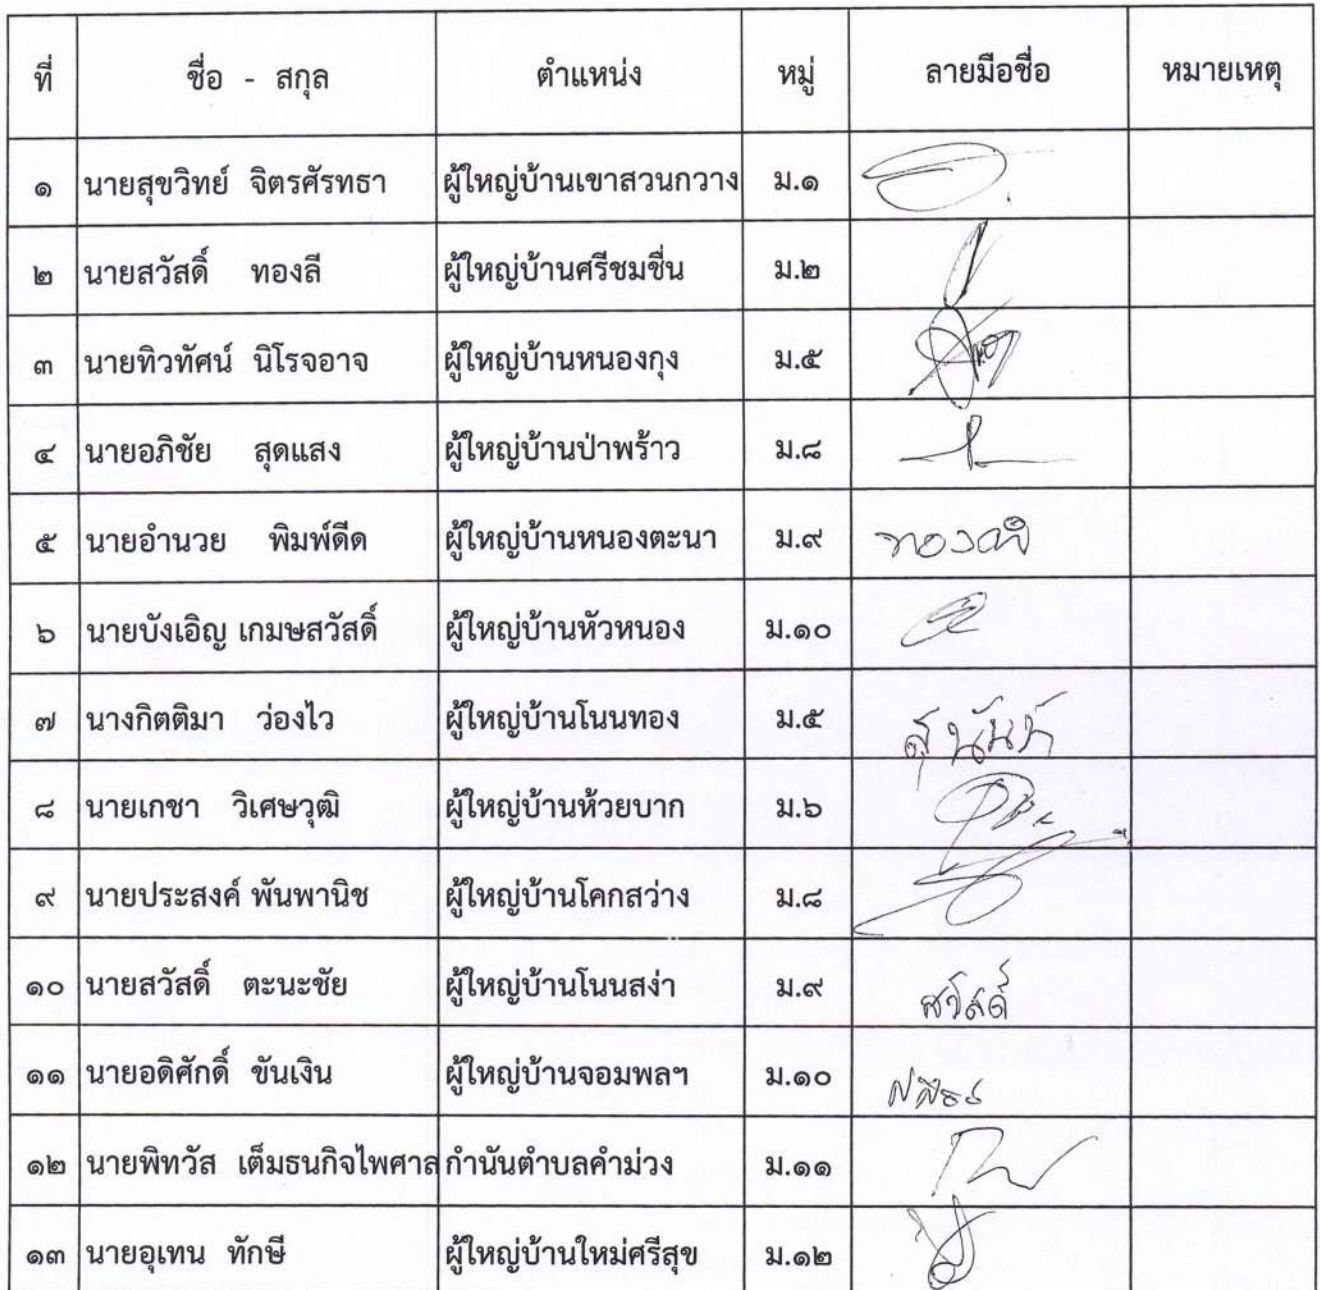 ที่ ชื่อ - สกุล ตำแหน่ง หมู่ ลายมือชื่อ หมายเหตุ
๑ นายสุขวิทย์ จิตรศัรทธา ผู้ใหญ่บ้านเขาสวนกวาง ม.๑
๒ นายสวัสดิ์ ทองลี ผู้ใหญ่บ้านศรีชมชื่น ม.๒
๓ นายทิวทัศน์ นิโรจอาจ ผู้ใหญ่บ้านหนองกุง ม.๕
๔ นายอภิชัย สุดแสง ผู้ใหญ่บ้านป่าพร้าว ม.๘
๕ นายอำนวย พิมพ์ดีด ผู้ใหญ่บ้านหนองตะนา ม.๙
๖ นายบังเอิญ เกมษสวัสดิ์ ผู้ใหญ่บ้านหัวหนอง ม.๑๐
๗ นางกิตติมา ว่องไว ผู้ใหญ่บ้านโนนทอง ม.๕
๘ นายเกชา วิเศษวุฒิ ผู้ใหญ่บ้านห้วยบาก ม.๖
๙ นายประสงค์ พันพานิช ผู้ใหญ่บ้านโคกสว่าง ม.๘
๑๐ นายสวัสดิ์ ตะนะชัย ผู้ใหญ่บ้านโนนสง่า ม.๙ สวัสดิ์
๑๑ นายอดิศักดิ์ ขันเงิน ผู้ใหญ่บ้านจอมพลฯ ม.๑๐
๑๒ นายพิทวัส เต็มธนกิจไพศาล กำนันตำบลคำม่วง ม.๑๑
๑๓ นายอุเทน ทักษี ผู้ใหญ่บ้านใหม่ศรีสุข ม.๑๒